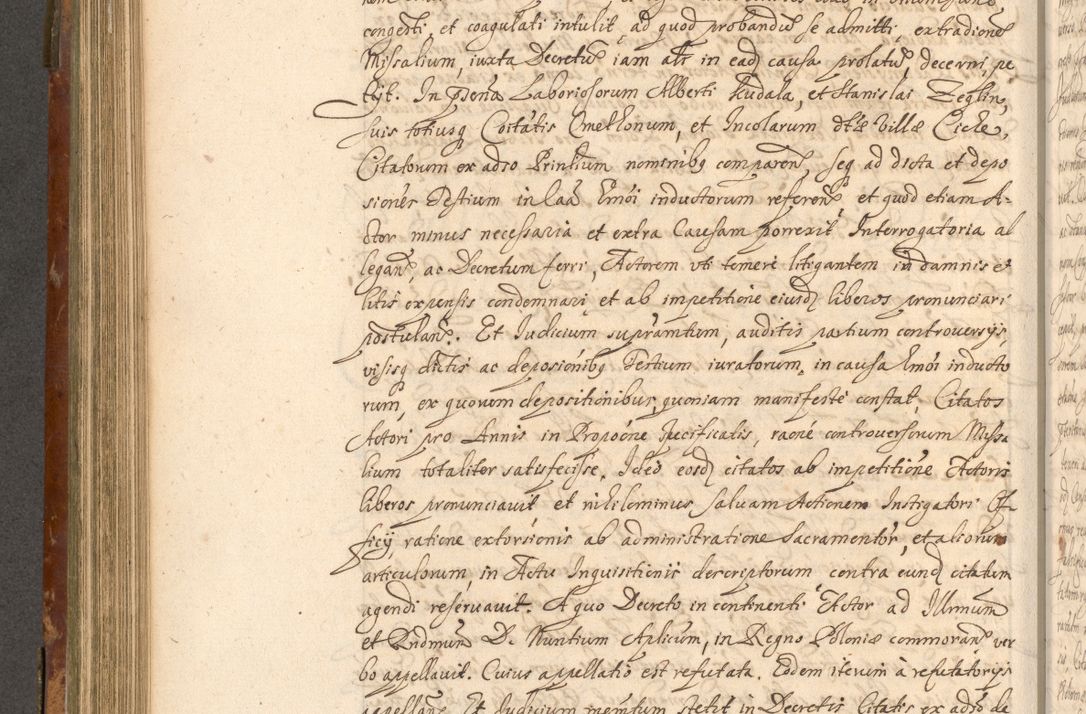 congesti, et coagulati intulit, ad quod probandũ se admitti, extradioneš
Missaliũm, iuxta Decretũ iam alš in eadꝫ causa prolatũ, decerni, pe
tijt. In pšena Laboriosorum Alberti Kudala, et Stanislai Zeglin,
suis totiusqꝫ Coitatis Cmethonum, et Incolarum dtæ villæ Ciche,
Citatorum ex adso Prinlium nominibꝫ comparenš, seqꝫ ad dicta et depo
siones Testium in Caã Emõi inductorum referenš, et quod etiam A-
ctor minus necessaria et extra Causam porrexit Interrogatoria al
leganš, ac Decretum ferri, Actorem vti temere litigantem in damnis et
litis expensis condemnari et ab impetitione eiusdꝫ liberos pronunciari
postulanš. Et Iudicium supramtum, auditis partium controversijs,
visisqꝫ dictis ac deposionibꝫ Testium iuratorum, in causa Emõi inducto
rum, ex quorum depositionibus, quoniam manifeste constat, Citatos
Actori pro Annis in Propõne specificatis, raõne controversorum Missa
lium totaliter satisfecisse. Ideo eosdꝫ citatos ab impetitiõne Actoris
liberos pronunciavit et nihilominus saluam Actionem Instigatori Of-
ficij, ratione extorsionis ab administratione sacramentor, et aliorum
articulorum, in Actu Inquisitionis descriptorum contra eundꝫ citatum
agendi reservauit. A quo Decreto in continenti Actor ad Illmum
et Rndmum D. Nuntium Aplicum, in Regno Poloniæ commoranš ver
bo appellavit. Cuius appellatio est refutata. Eodem iterum à refutatorijs
appellanš. Et Iudicium memtum stetit in Decretis Citatis ex adso da